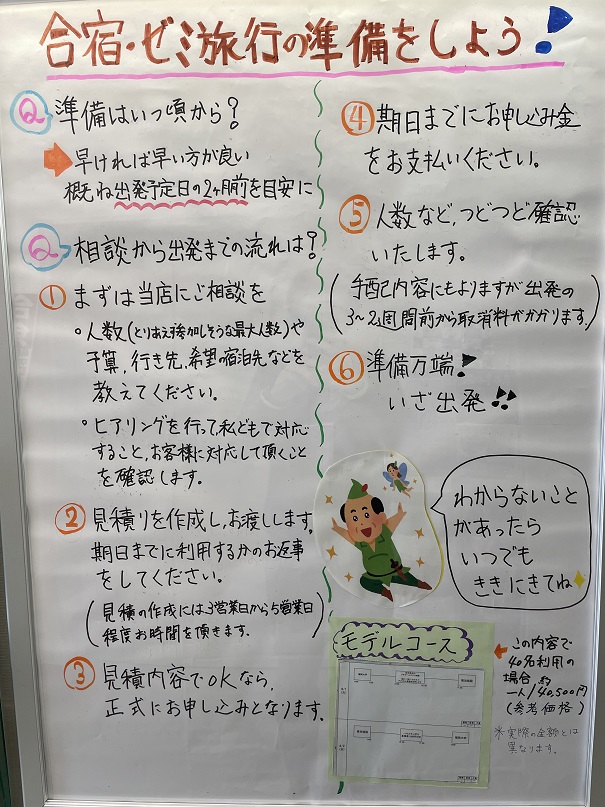 合宿・ゼミ旅行の準備をしよう!
Q 準備はいつ頃から?
早ければ早い方が良い
概ね出発予定日の2ヶ月前を目安に
Q 相談から出発までの流れは?
① まずは当店にご相談を
・人数(とりあえず参加しそうな最大人数)や
予算,行き先,希望の宿泊先などを
教えてください。
・ヒアリングを行って私どもで対応
すること,お客様に対応して頂くこと
を確認します。
② 見積りを作成し,お渡しします。
期日までに利用するかのお返事
をしてください。
(見積の作成には3営業日から5営業日
程度お時間を頂きます。)
③ 見積内容でOKなら,
正式にお申し込みとなります。
④ 期日までにお申し込み金
をお支払いください。
⑤ 人数など,つどつど確認
いたします。
(手配内容にもよりますが出発の
3~2週間前から取消料がかかります。)
⑥ 準備万端!
いざ出発!!
わからないこと
があったら
いつでも
ききにきてね
モデルコース
この内容で
40名利用の
場合 約
一人/40,500円
(参考価格)
※実際の金額とは
異なります。